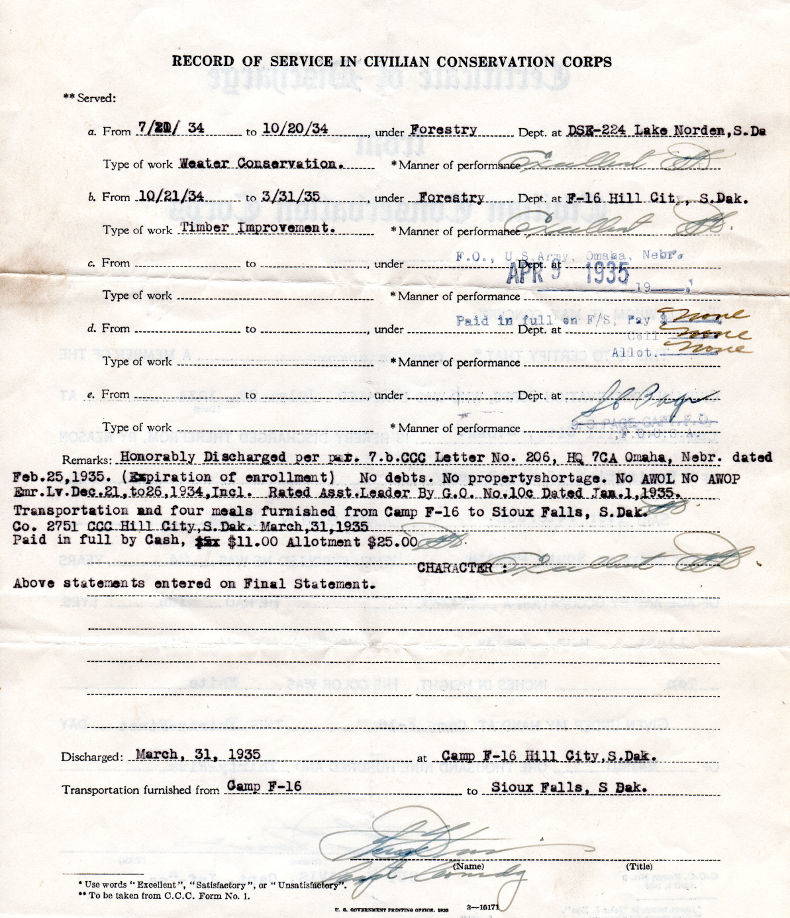 RECORD OF SERVICE IN CIVILIAN CONSERVATION CORPS
** Served:
a. From 7/21/ 34 to 10/20/34, under Forestry Dept. at DSE-224 Lake Norden,S.Da
Type of work Weater Conservation. * Manner of performance Excellent
b. From 10/21/34 to 3/31/35 under Forestry Dept. at F-16 Hill City, S.Dak.
Type of work Timber Improvement. * Manner of performance Excellent
F.O., U.S.Army, Omaha, Nebr.
c. From to under Dept. at
APR 9 1935
19
Type of work * Manner of performance
Paid in full on F/S, Pay $ None
d. From to , under Dept. at
Coll None
Type of work * Manner of performance
Allot. None
e. From to , under Dept. at
Type of work * Manner of performance
Remarks: Honorably Discharged per par. 7.b.CCC Letter No. 206, HQ 7CA Omaha, Nebr. dated
Feb.25,1935. (Expiration of enrollment) No debts. No propertyshortage. No AWOL No AWOP
Emr.Lv.Dec.21,to26,1934,Incl. Rated Asst.Leader By G.O. No.10c Dated Jan.1,1935.
Transportation and four meals furnished from Camp F-16 to Sioux Falls, S.Dak.
Co. 2751 CCC Hill City,S.Dak. March,31,1935
Paid in full by Cash, $11.00 Allotment $25.00
CHARACTER : Excellent
Above statements entered on Final Statement.
Discharged: March, 31, 1935 at Camp F-16 Hill City,S.Dak.
Transportation furnished from Camp F-16 to Sioux Falls, S Dak.
(Name) (Title)
* Use words "Excellent", "Satisfactory", or "Unsatisfactory".
** To be taken from C.C.C. Form No. 1.
U. S. GOVERNMENT PRINTING OFFICE, 1933 3—16171